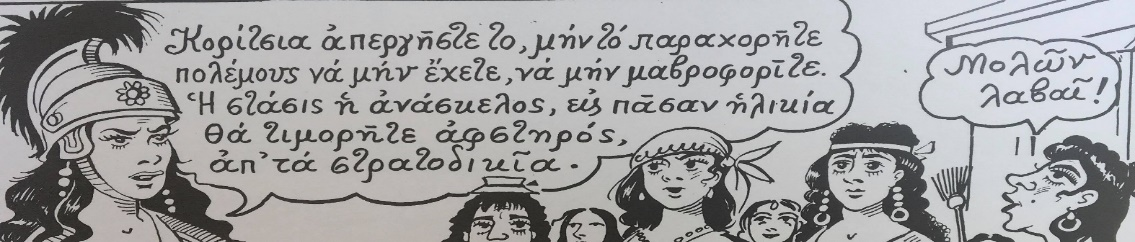 Κορίτσια ἀπεργῆστε το, μήν τό παραχορῆτε
πολέμους νά μήν ἔχετε, νά μήν μαβροφορῖτε.
Ἡ στάσις ἡ ἀνάσκελος, εἰς πᾶσαν ἡλικία
θά τιμορῆτε ἀφστηρός,
ἀπ' τά στρατοδικῖα.
Μολῶν
λαβαῖ!